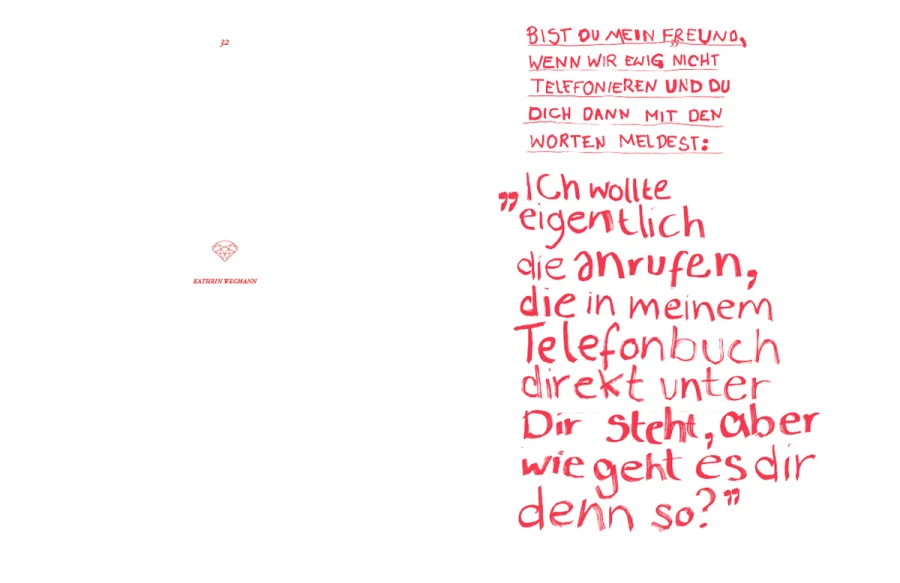 32
KATHRIN WEGMANN
BIST DU MEIN FREUND,
WENN WIR EWIG NICHT
TELEFONIEREN UND DU
DICH DANN MIT DEN
WORTEN MELDEST:
„Ich wollte
eigentlich
die anrufen,
die in meinem
Telefonbuch
direkt unter
Dir steht, aber
wie geht es dir
denn so?”